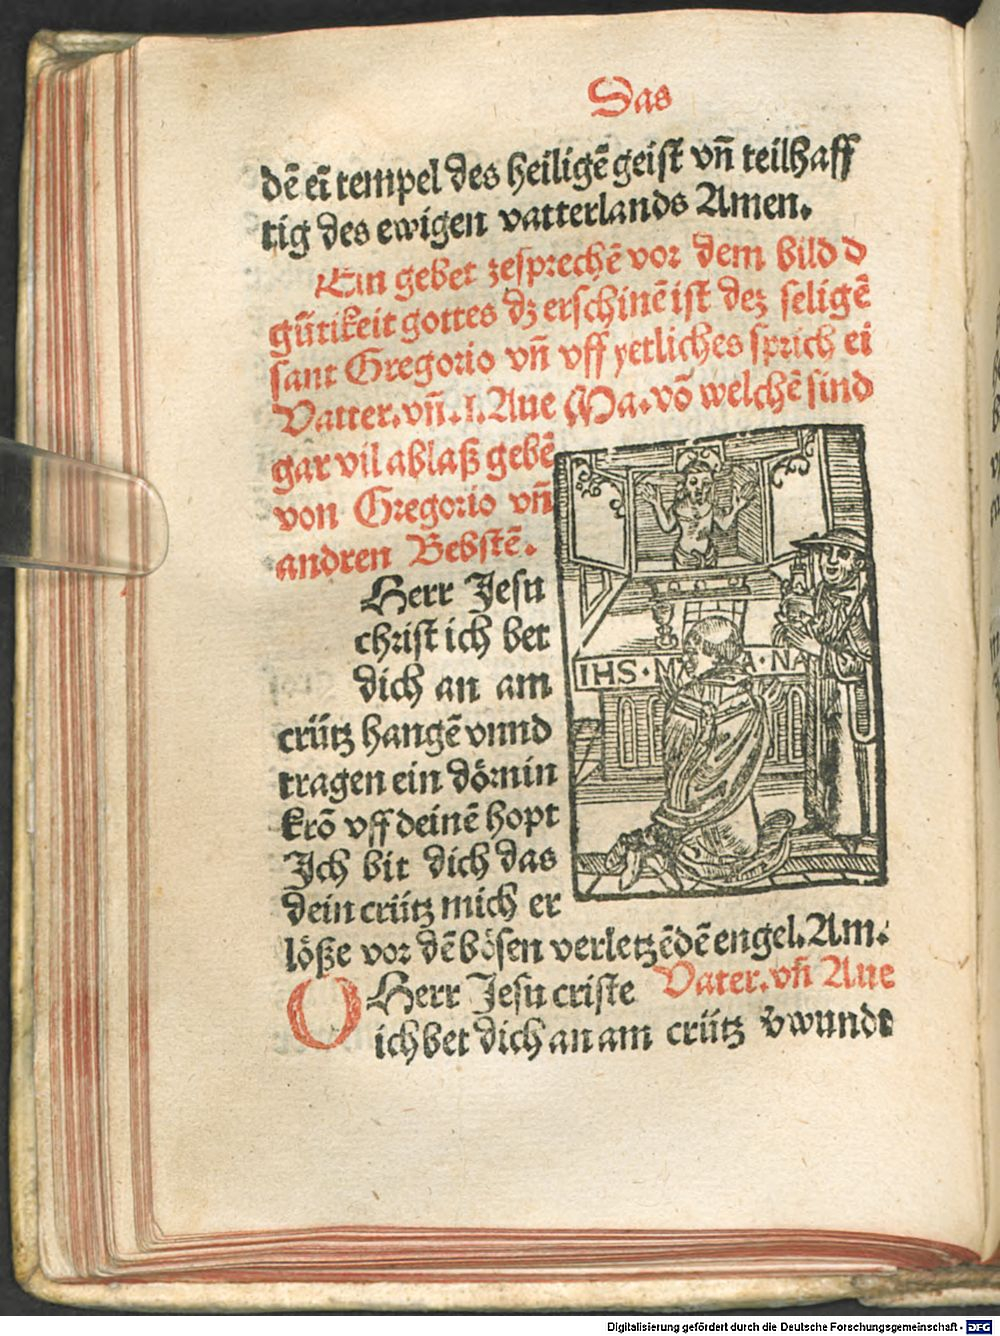 Das
dē eī tempel des heiligē geist vn̄ teilhaff
tig des ewigen vatterlands Amen.
Ein gebet zesprechē vor dem bild d
gu̇tikeit gottes dz erschinē ist dez seligē
sant Gregorio vn̄ vff yetliches sprich ei
Vatter. vn̄. j. Aue Ma. vō welchē sind
gar vil ablaß gebē
von Gregorio vn̄
andren Bebstē.
Herr Jesu
christ ich bet
dich an am
crütz hangē vnnd
tragen ein dörnin
krō vff deinē hopt
Jch bit dich das
dein crütz mich er
löße vor dē bösen verletzēdē engel. Am.
O Herr Jesu criste Vater. vn̄ Aue
ich bet dich an am crütz v̄wundt
IHS · M A · NA
Digitalisierung gefördert durch die Deutsche Forschungsgemeinschaft - DFG